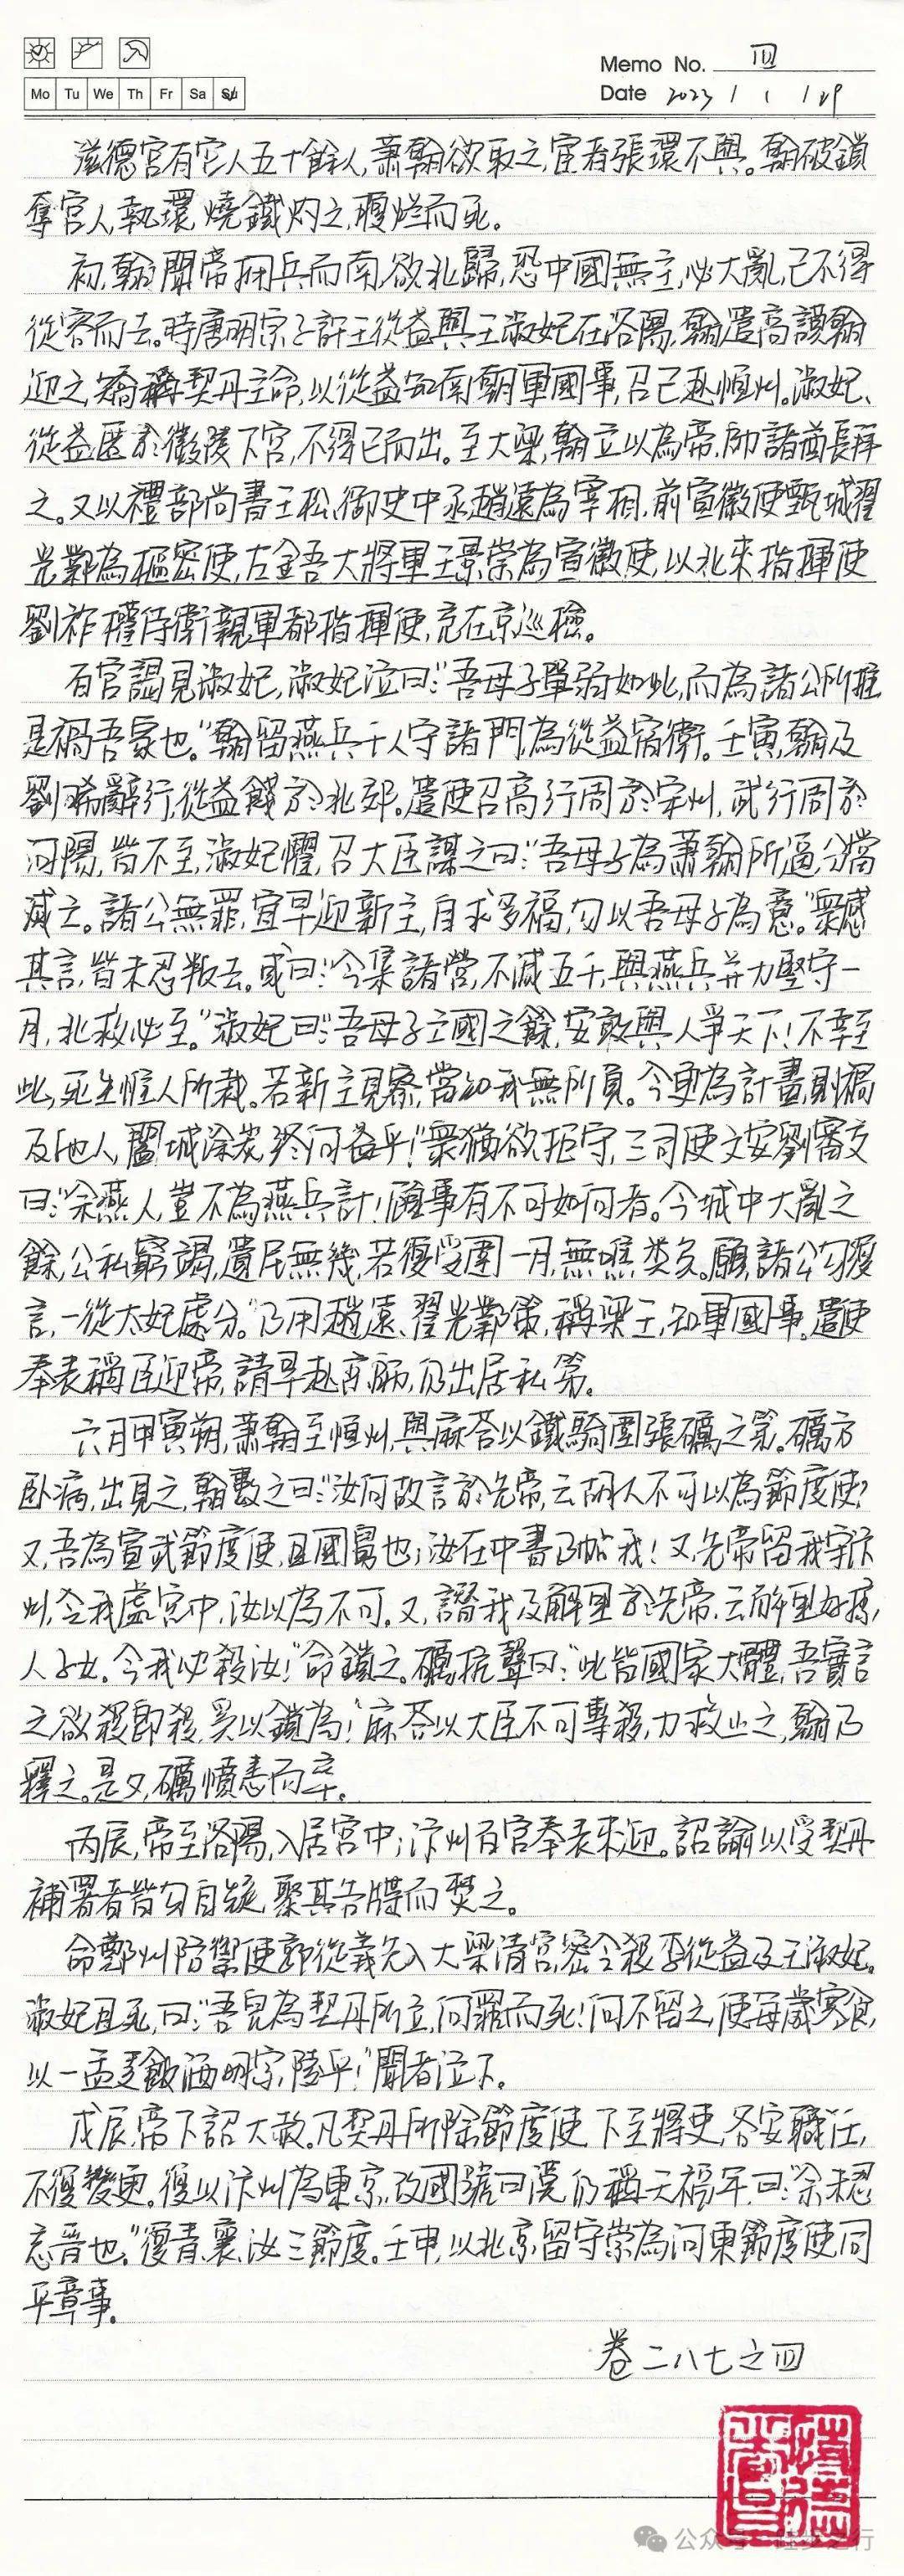 Memo No. 四
Mo Tu We Th Fr Sa Su
Date 2023 / 1 / 29
滋德宮有宮人五十餘人,蕭翰欲取之,宦者張環不與。翰破鎖
奪宮人,執環,燒鐵灼之,腹爛而死。
初,翰聞帝擁兵而南,欲北歸,恐中國無主,必大亂,己不得
從容而去。時唐明宗子許王從益與王淑妃在洛陽,翰遣高謨翰
迎之,矯稱契丹主命,以從益知南朝軍國事,召己赴恒州。淑妃、
從益匿於徽陵下宮,不得已而出。至大梁,翰立以為帝,帥諸酋長拜
之。又以禮部尚書王松、御史中丞趙遠為宰相,前宣徽使甄城翟
光鄴為樞密使,左金吾大將軍王景崇為宣徽使,以北來指揮使
劉祚權侍衛親軍都指揮使,充在京巡檢。
百官謁見淑妃,淑妃泣曰:“吾母子單弱如此,而為諸公所推,
是禍吾家也。”翰留燕兵千人守諸門,為從益宿衛。壬寅,翰及
劉晞辭行,從益餞於北郊。遣使召高行周於宋州,武行周於
河陽,皆不至,淑妃懼,召大臣謀之曰:“吾母子為蕭翰所逼,分當
滅亡。諸公無罪,宜早迎新主,自求多福,勿以吾母子為意。”眾感
其言,皆未忍叛去。或曰:“今集諸營,不減五千,與燕兵并力堅守一
月,北救必至。”淑妃曰:“吾母子亡國之餘,安敢與人爭天下!不幸至
此,死生惟人所裁。若新主見察,當知我無所負。今更為計畫,則禍
及他人,闔城塗炭,終何益乎!”眾猶欲拒守,三司使文安劉審交
曰:“余燕人,豈不為燕兵計!顧事有不可如何者。今城中大亂之
餘,公私窮竭,遺民無幾,若復受圍一月,無噍類矣。願諸公勿復
言,一從太妃處分。”乃用趙遠、翟光鄴策,稱梁王,知軍國事。遣使
奉表稱臣迎帝,請早赴京師,仍出居私第。
六月甲寅朔,蕭翰至恒州,與麻荅以鐵騎圍張礪之第。礪方
卧病,出見之,翰數之曰:“汝何故言於先帝,云胡人不可以為節度使?
又,吾為宣武節度使,且國舅也;汝在中書乃帖我!又,先帝留我守汴
州,令我處宮中,汝以為不可。又,譖我及解里於先帝,云解里好掠
人子女。今我必殺汝!”命鎖之。礪抗聲曰:“此皆國家大體,吾實言
之,欲殺即殺,奚以鎖為!”麻荅以大臣不可專殺,力救止之,翰乃
釋之。是夕,礪憤恚而卒。
丙辰,帝至洛陽,入居宮中;汴州百官奉表來迎。詔諭以受契丹
補署者皆勿自疑,聚其告牒而焚之。
命鄭州防禦使郭從義先入大梁清宮,密令殺李從益及王淑妃。
淑妃且死,曰:“吾兒為契丹所立,何罪而死!何不留之,使每歲寒食,
以一盂麥飯洒明宗陵乎!”聞者泣下。
戊辰,帝下詔大赦。凡契丹所除節度使,下至將吏,各安職任,
不復變更。復以汴州為東京,改國號曰漢,仍稱天福年,曰:“余未忍
忘晉也。”復青、襄、汝三節度。壬申,以北京留守崇為河東節度使,同
平章事。
卷二八七之四
公众号